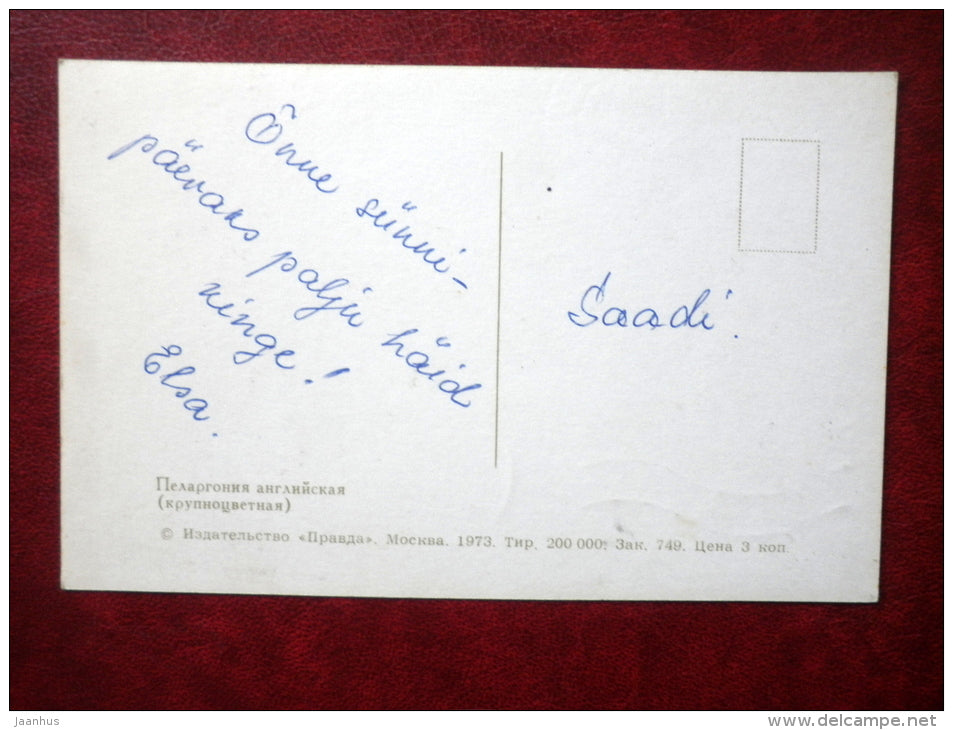 Õnne sünni-
päevaks palju häid
hinge!
Elsa.
Saadi.
Пеларгония английская
(крупноцветная)
© Издательство «Правда». Москва. 1973. Тир. 200 000. Зак. 749. Цена 3 коп.
jaanhus
www.delcampe.net